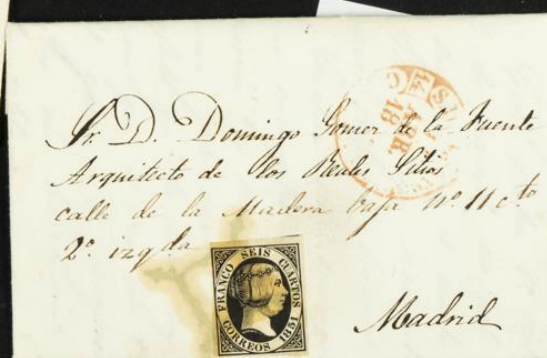 Sr. D. Domingo Gomez de la Fuente
Arquitecto de los Reales Sitios
calle de la Madera baja nº. 11 cto
2º. izqda
Madrid
FRANCO SEIS CUARTOS
CORREOS 1851